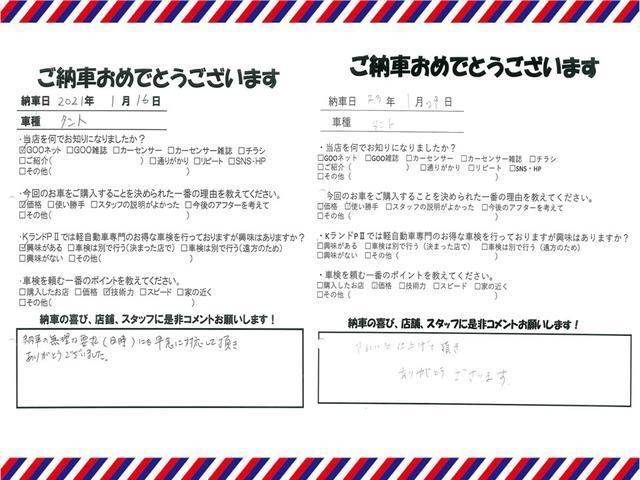 ご納車おめでとうございます
納車日 2021年 1月16日
車種 タント
・当店を何でお知りになりましたか？
☑GOOネット □GOO雑誌 □カーセンサー □カーセンサー雑誌 □チラシ
□ご紹介( ) □通りがかり □リピート □SNS・HP
□その他( )
・今回のお車をご購入することを決められた一番の理由を教えてください。
☑価格 □使い勝手 □スタッフの説明がよかった □今後のアフターを考えて
□その他( )
・KランドPⅡでは軽自動車専門のお得な車検を行っておりますが興味はありますか？
☑興味がある □車検は別で行う（決まった店で） □車検は別で行う（遠方のため）
□興味がない □その他( )
・車検を頼む一番のポイントを教えてください。
□購入したお店 □価格 ☑技術力 □スピード □家の近く
□その他( )
納車の喜び、店舗、スタッフに是非コメントお願いします！
納車の無理な要求（日時）にも早急に対応して頂き
ありがとうございました。
ご納車おめでとうございます
納車日 1月29日
車種 タント
・当店を何でお知りになりましたか？
□GOOネット □GOO雑誌 □カーセンサー □カーセンサー雑誌 □チラシ
□ご紹介( ) □通りがかり □リピート □SNS・HP
□その他( )
今回のお車をご購入することを決められた一番の理由を教えてください。
☑価格 ☑使い勝手 □スタッフの説明がよかった □今後のアフターを考えて
□その他( )
・KランドPⅡでは軽自動車専門のお得な車検を行っておりますが興味はありますか？
□興味がある □車検は別で行う（決まった店で） □車検は別で行う（遠方のため）
□興味がない □その他( )
・車検を頼む一番のポイントを教えてください。
□購入したお店 ☑価格 □技術力 □スピード □家の近く
□その他( )
納車の喜び、店舗、スタッフに是非コメントお願いします！
きれいに仕上げて頂き
ありがとうございます